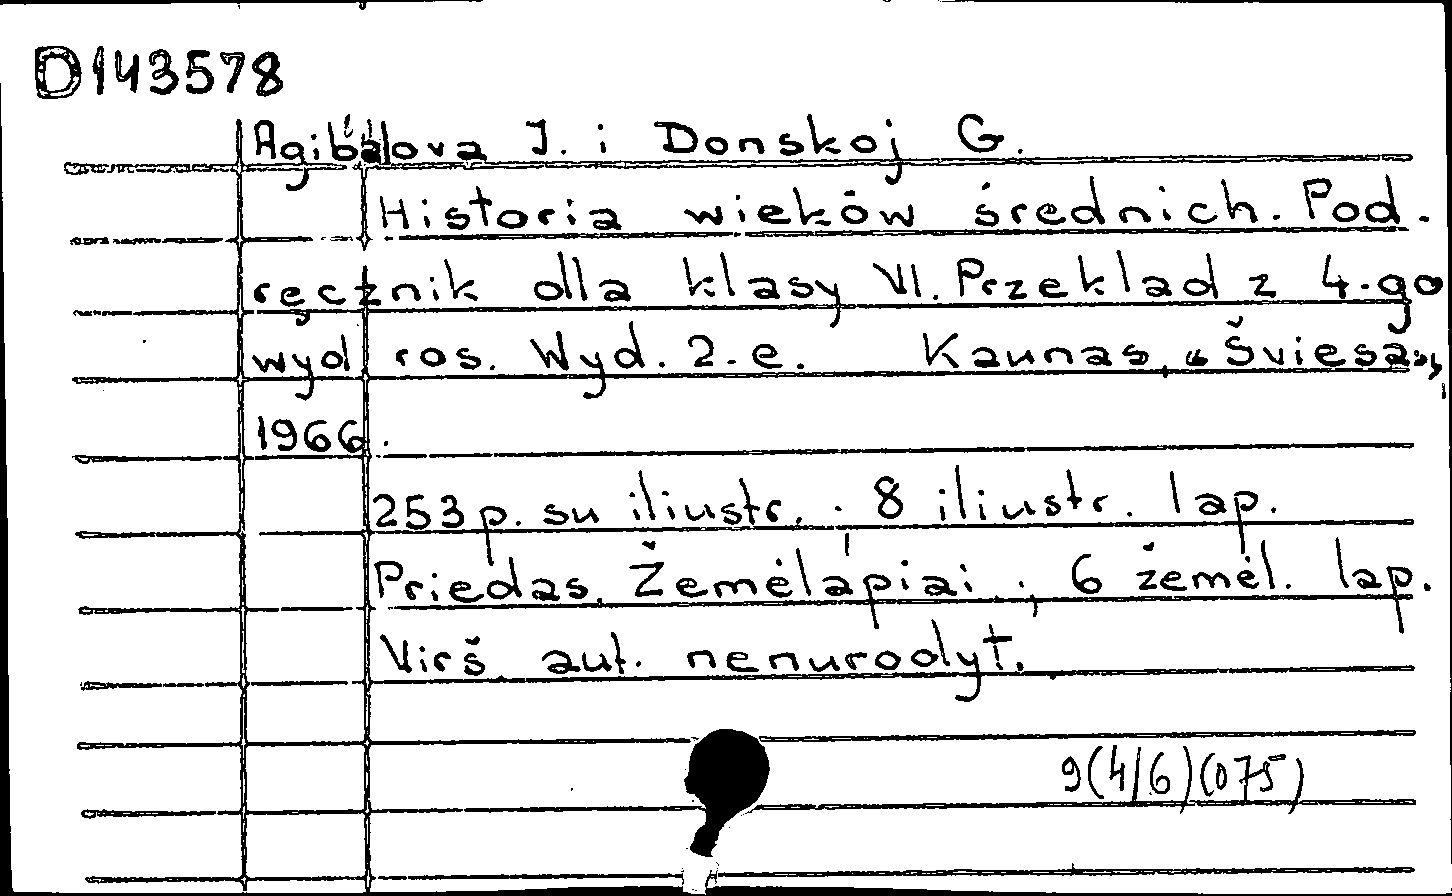 D143578
Agibalova J. i Donskoj G.
Historia wieków średnich. Pod-
ręcznik dla klasy VI. Przeklad z 4-go
wyd ros. Wyd. 2-e. Kaunas, „Šviesa",
1966.
253 p. su iliustr.; 8 iliustr. lap.
Priedas. Žemėlapiai.; 6 žemėl. lap.
Virš. aut. nenurodyt.
9(4/6)(075)